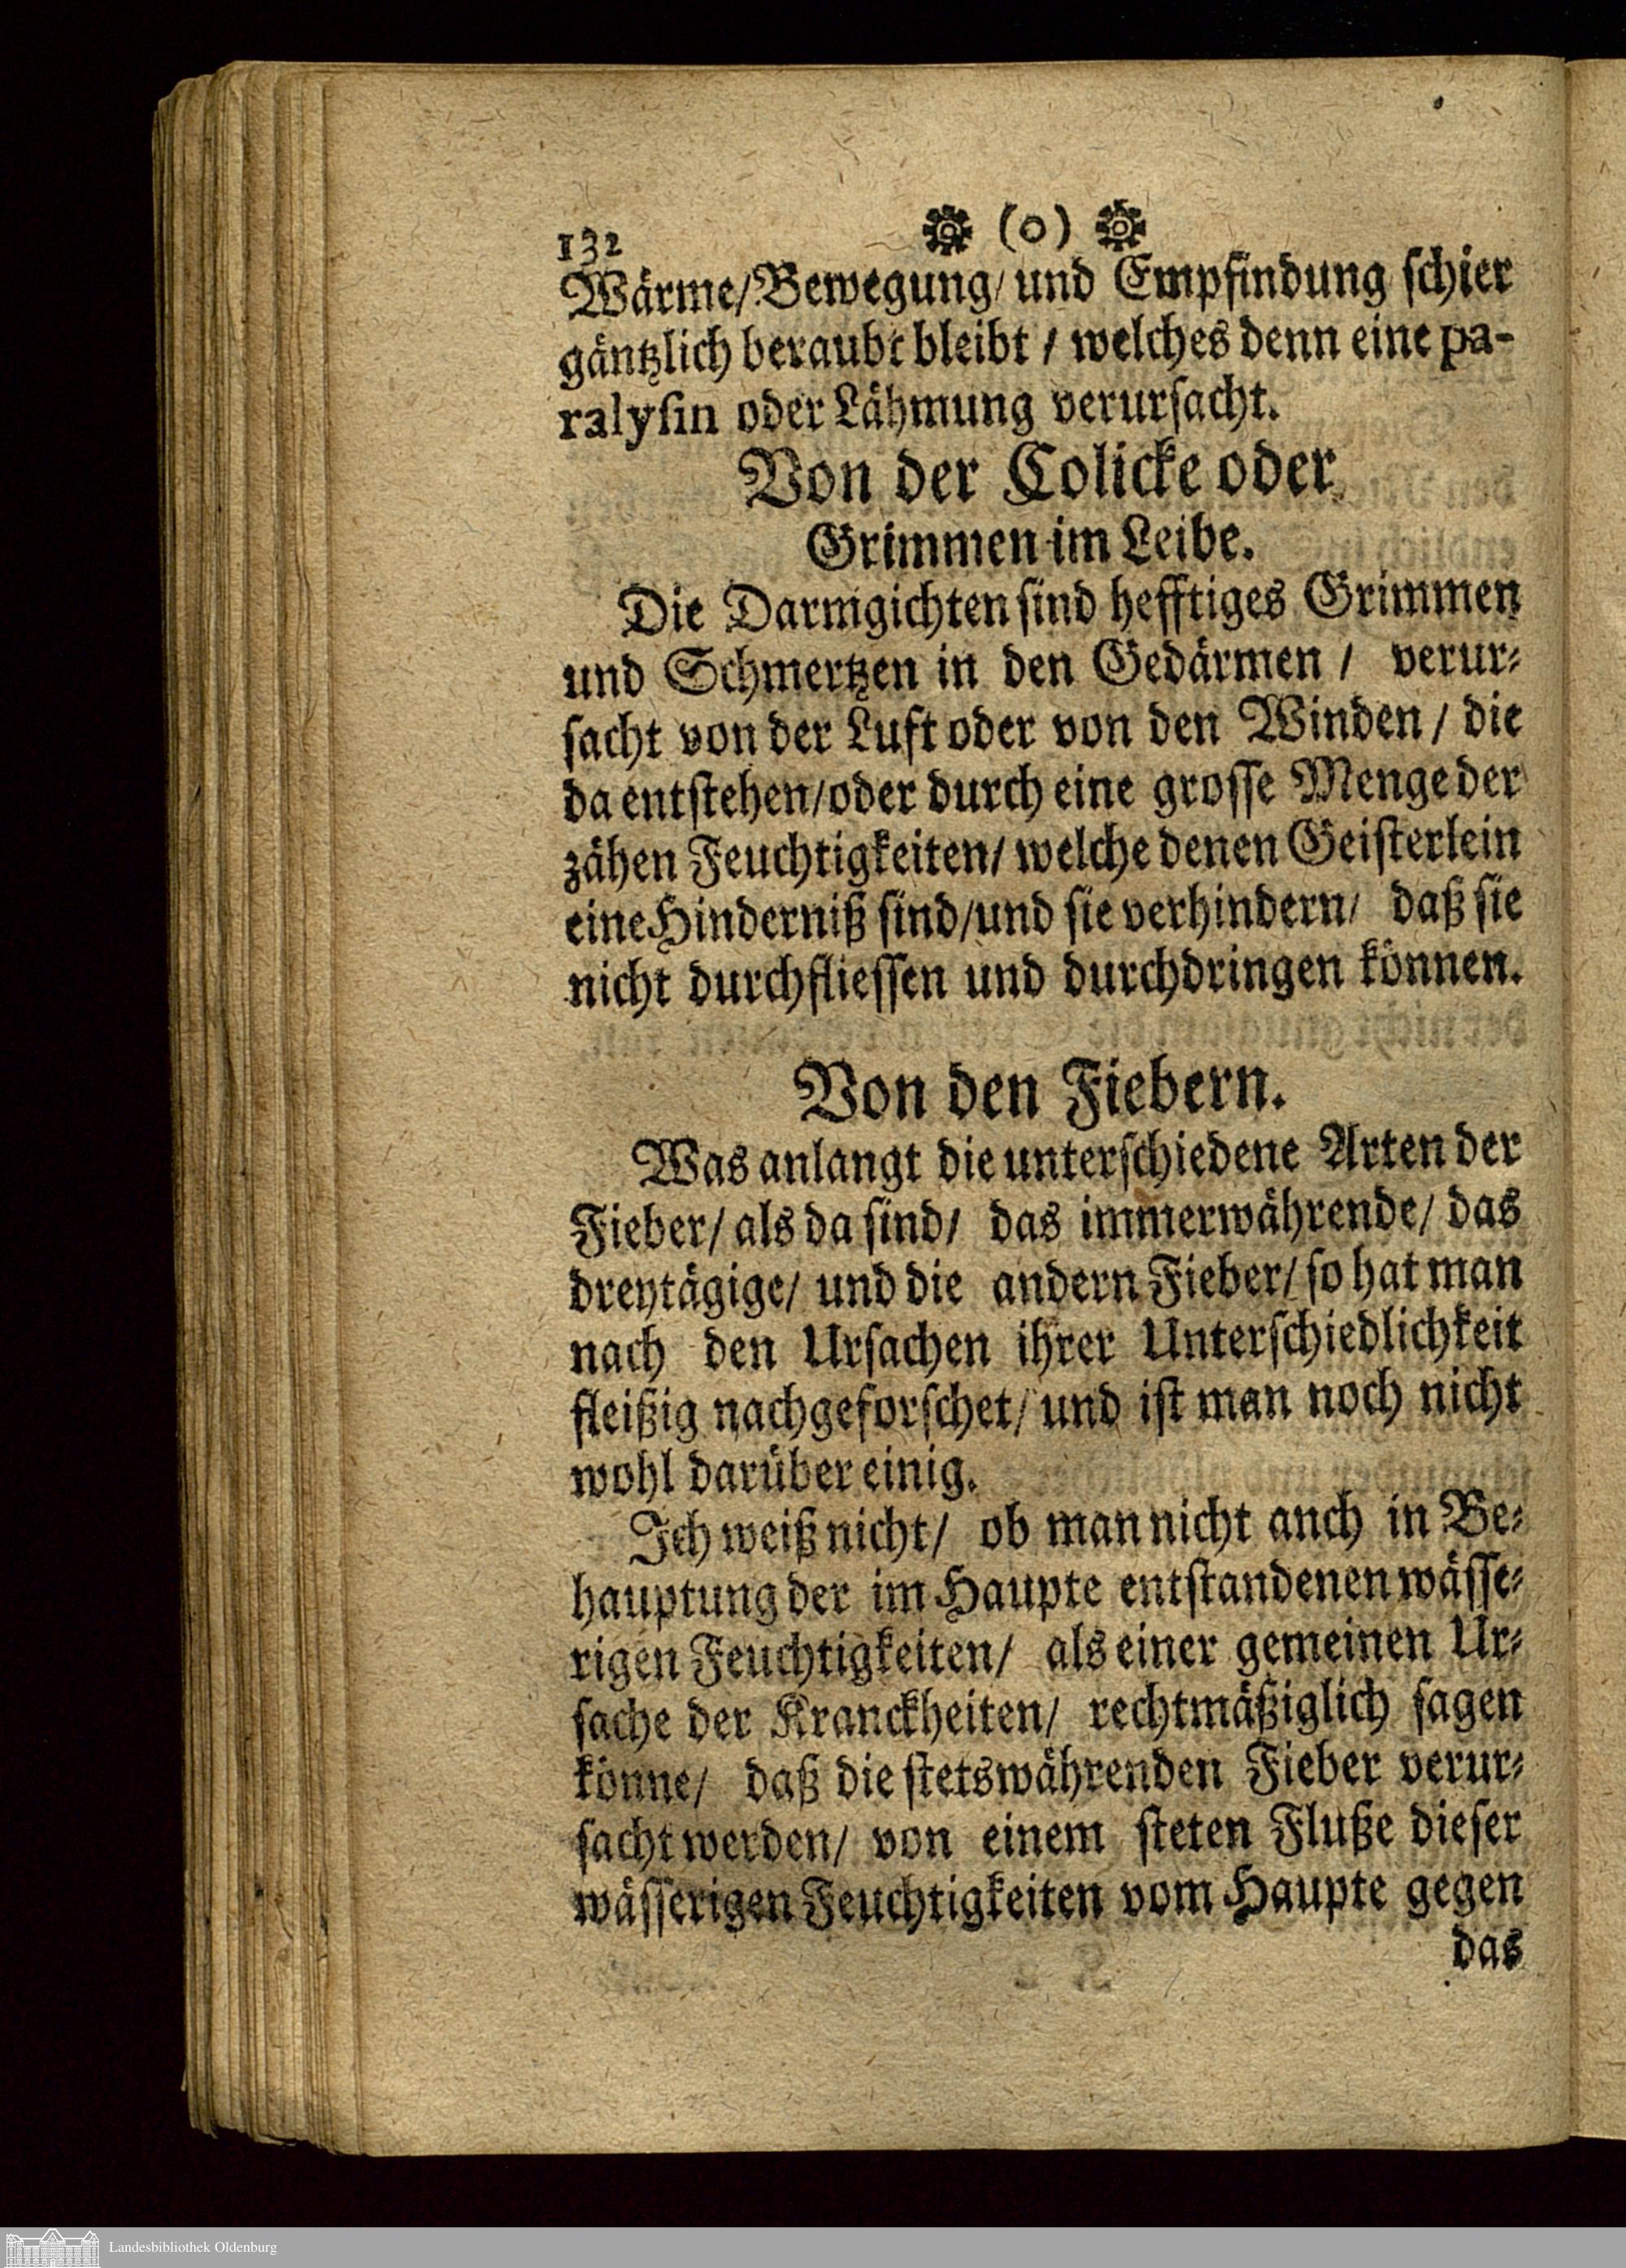 132
❁ (o) ❁
Wärme/Bewegung/ und Empfindung schier
gäntzlich beraubt bleibt / welches denn eine pa-
ralysin oder Lähmung verursacht.
Von der Colicke oder
Grimmen im Leibe.
Die Darmgichten sind hefftiges Grimmen
und Schmertzen in den Gedärmen / verur-
sacht von der Luft oder von den Winden / die
da entstehen/oder durch eine grosse Menge der
zähen Feuchtigkeiten/ welche denen Geisterlein
eine Hinderniß sind/und sie verhindern/ daß sie
nicht durchfliessen und durchdringen können.
Von den Fiebern.
Was anlangt die unterschiedene Arten der
Fieber/ als da sind/ das immerwährende/ das
dreytägige/ und die andern Fieber/ so hat man
nach den Ursachen ihrer Unterschiedlichkeit
fleißig nachgeforschet/ und ist man noch nicht
wohl darüber einig.
Ich weiß nicht/ ob man nicht auch in Be-
hauptung der im Haupte entstandenen wässe-
rigen Feuchtigkeiten/ als einer gemeinen Ur-
sache der Kranckheiten/ rechtmäßiglich sagen
könne/ daß die stetswährenden Fieber verur-
sacht werden/ von einem steten Fluße dieser
wässerigen Feuchtigkeiten vom Haupte gegen
das
Landesbibliothek Oldenburg